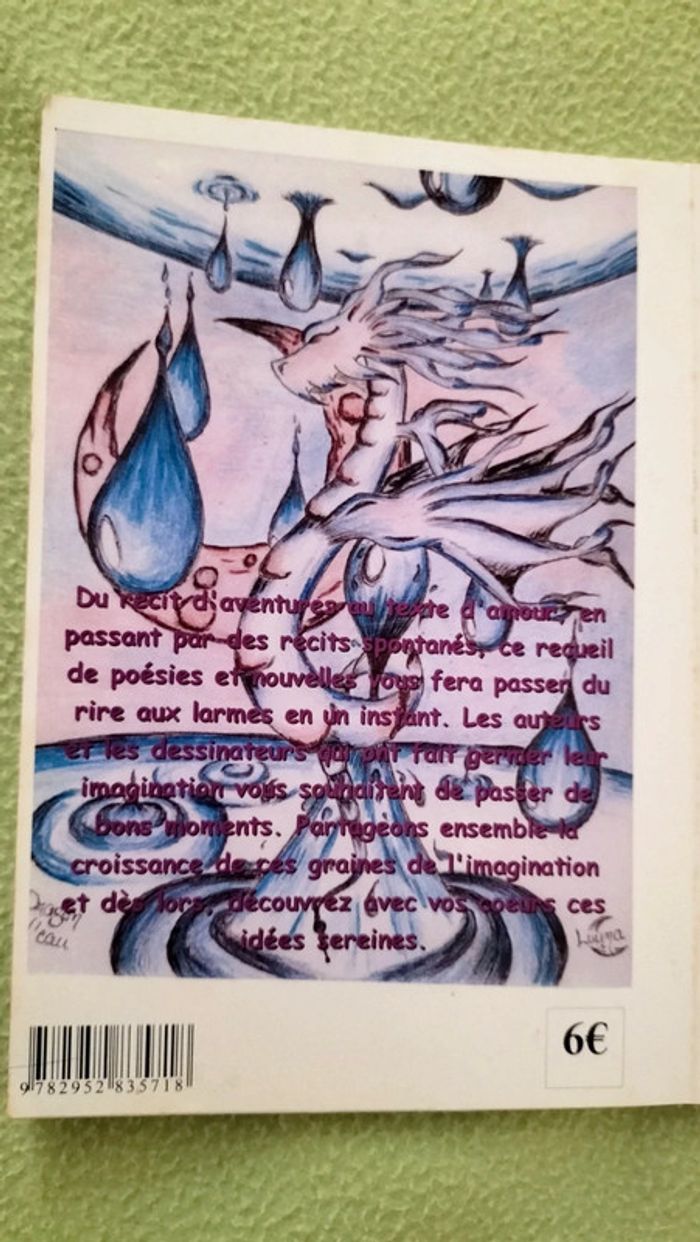 Du récit d'aventures au texte d'amour, en
passant par des récits spontanés, ce recueil
de poésies et nouvelles vous fera passer du
rire aux larmes en un instant. Les auteurs
et les dessinateurs qui ont fait germer leur
imagination vous souhaitent de passer de
bons moments. Partageons ensemble la
croissance de ces graines de l'imagination
et dès lors, découvrez avec vos coeurs ces
idées sereines.
Dragon
d'eau
Luyna
9 782952 835718
6€